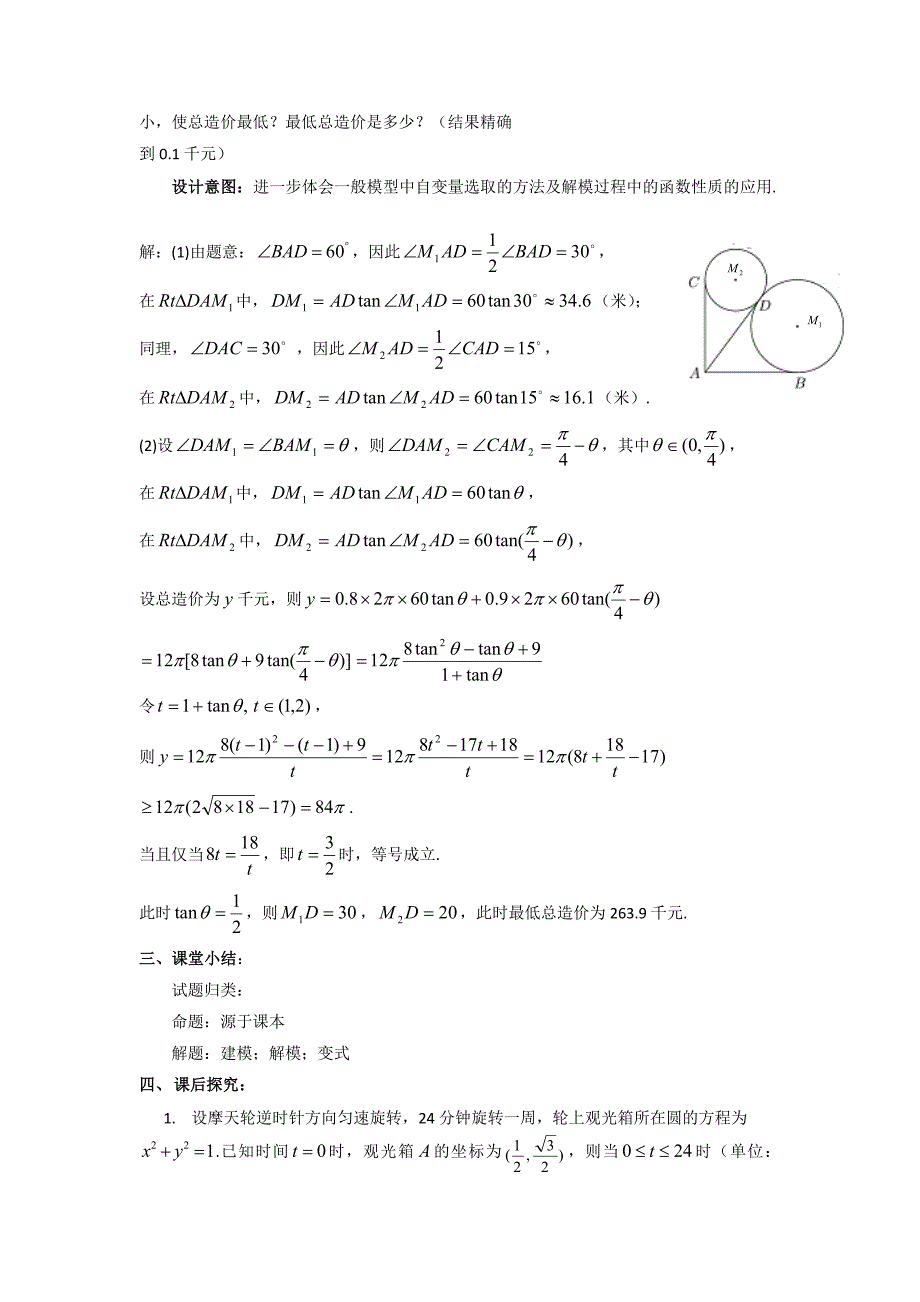 小，使总造价最低？最低总造价是多少？（结果精确
到 0.1 千元）
设计意图：进一步体会一般模型中自变量选取的方法及解模过程中的函数性质的应用.
解：(1)由题意：∠BAD = 60°，因此∠M₁AD = 1/2 ∠BAD = 30°，
在 RtΔDAM₁ 中，DM₁ = AD tan∠M₁AD = 60 tan 30° ≈ 34.6（米）；
同理，∠DAC = 30°，因此∠M₂AD = 1/2 ∠CAD = 15°，
在 RtΔDAM₂ 中，DM₂ = AD tan∠M₂AD = 60 tan 15° ≈ 16.1（米）.
C M₂ D M₁ A B
(2)设∠DAM₁ = ∠BAM₁ = θ，则∠DAM₂ = ∠CAM₂ = π/4 − θ，其中θ ∈ (0, π/4)，
在 RtΔDAM₁ 中，DM₁ = AD tan∠M₁AD = 60 tan θ，
在 RtΔDAM₂ 中，DM₂ = AD tan∠M₂AD = 60 tan(π/4 − θ)，
设总造价为 y 千元，则 y = 0.8 × 2π × 60 tan θ + 0.9 × 2π × 60 tan(π/4 − θ)
= 12π[8 tan θ + 9 tan(π/4 − θ)] = 12π (8 tan² θ − tan θ + 9)/(1 + tan θ)
令 t = 1 + tan θ, t ∈ (1,2)，
则 y = 12π (8(t − 1)² − (t − 1) + 9)/t = 12π (8t² − 17t + 18)/t = 12π(8t + 18/t − 17)
≥ 12π(2√(8×18) − 17) = 84π.
当且仅当 8t = 18/t，即 t = 3/2 时，等号成立.
此时 tan θ = 1/2，则 M₁D = 30，M₂D = 20，此时最低总造价为 263.9 千元.
三、课堂小结：
试题归类：
命题：源于课本
解题：建模；解模；变式
四、 课后探究：
1. 设摩天轮逆时针方向匀速旋转，24 分钟旋转一周，轮上观光箱所在圆的方程为
x² + y² = 1.已知时间 t = 0 时，观光箱 A 的坐标为 (1/2, √3/2)，则当 0 ≤ t ≤ 24 时（单位：